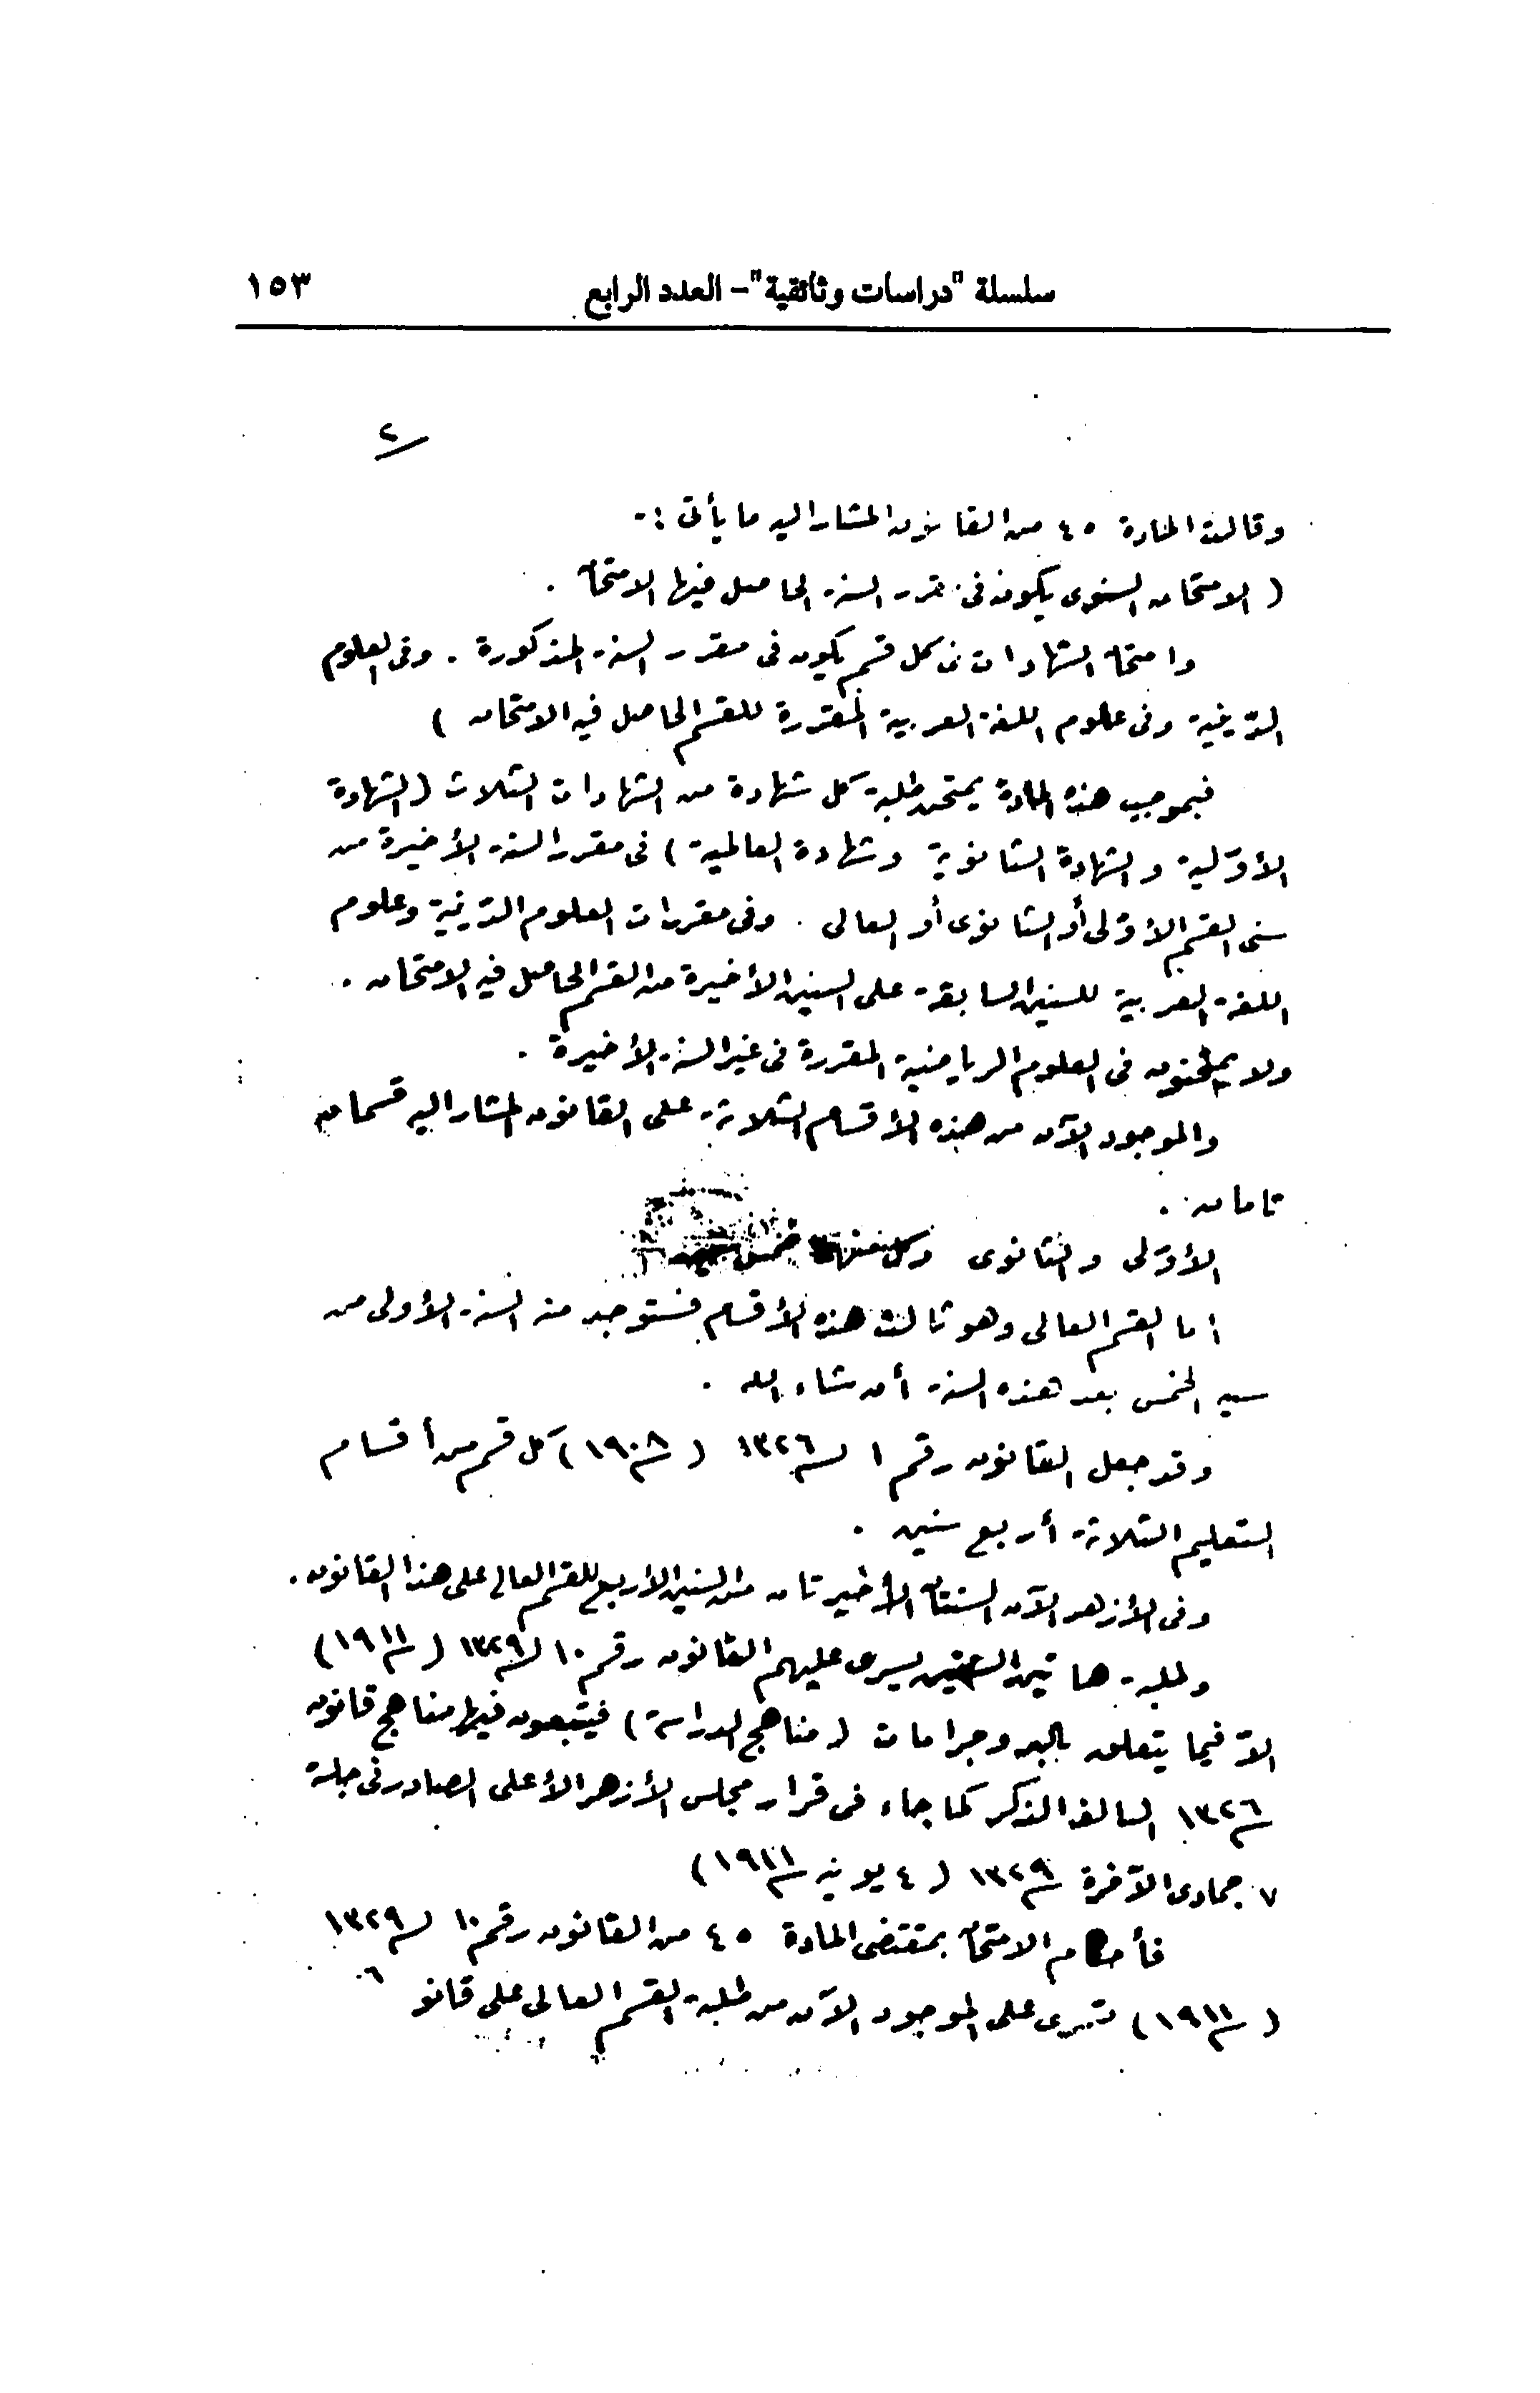 سلسلة "دراسات وثائقية" – العدد الرابع ١٥٣
٢
وقالت المادة ٤٥ من القانون المشار اليه ما يأتى :-
( الامتحان السنوى يكون فى مقرر السنة الحاصل فيها الامتحان .
وامتحان الشهادات فى كل قسم يكون فى مقرر السنة المذكورة . وفى العلوم
الدّينية وفى علوم اللغة العربية المقررة للقسم الحاصل فيه الامتحان )
فبموجب هذه المادة يمتحن طلبة كل شهادة من الشهادات الثلاث ( الشهادة
الأوّلية والشهادة الثانوية وشهادة العالمية ) فى مقرر السنة الأخيرة من
سنى القسم الأوّلى أو الثانوى أو العالى . وفى مقررات العلوم الدّينية وعلوم
اللغة العربية للسنين السابقة على السنين الأخيرة من القسم الحاصل فيه الامتحان .
ولا يمتحنون فى العلوم الرياضية المقررة فى غير السنة الأخيرة .
والموجود الآن من هذه الأقسام الثلاثة على القانون المشار اليه قسمان
تامان .
الأوّلى والثانوى وكل منها خمس
أما القسم العالى وهو ثالث هذه الأقسام فستوجد منه السنة الأولى من
سنيه الخمس بعد هذه السنة أن شاء الله .
وقد جعل القانون رقم ١ لسنة ١٣٢٦ ( سنة ١٩٠٨ ) كل قسم من أقسام
التعليم الثلاثة أربع سنين .
وفى الأزهر الآن السنتان الأخيرتان من السنين الأربع للقسم العالى على هذا القانون .
وطلبة هاتين السنتين يسرى عليهم القانون رقم ١٠ لسنة ١٣٢٩ ( سنة ١٩١١ )
الاّ فيما يتعلق بالبروجرامات ( مناهج الدراسة ) فيتبعون فيها مناهج قانون
سنة ١٣٢٦ السالف الذكر كما جاء فى قرار مجلس الأزهر الأعلى الصادر فى جلسة
٧ جمادى الآخرة سنة ١٣٢٩ ( ٤ يونيه سنة ١٩١١ )
فأحكام الامتحان بمقتضى المادة ٤٥ من القانون رقم ١٠ لسنة ١٣٢٩
( سنة ١٩١١ ) تسرى على الموجود الآن من طلبة القسم العالى على قانو